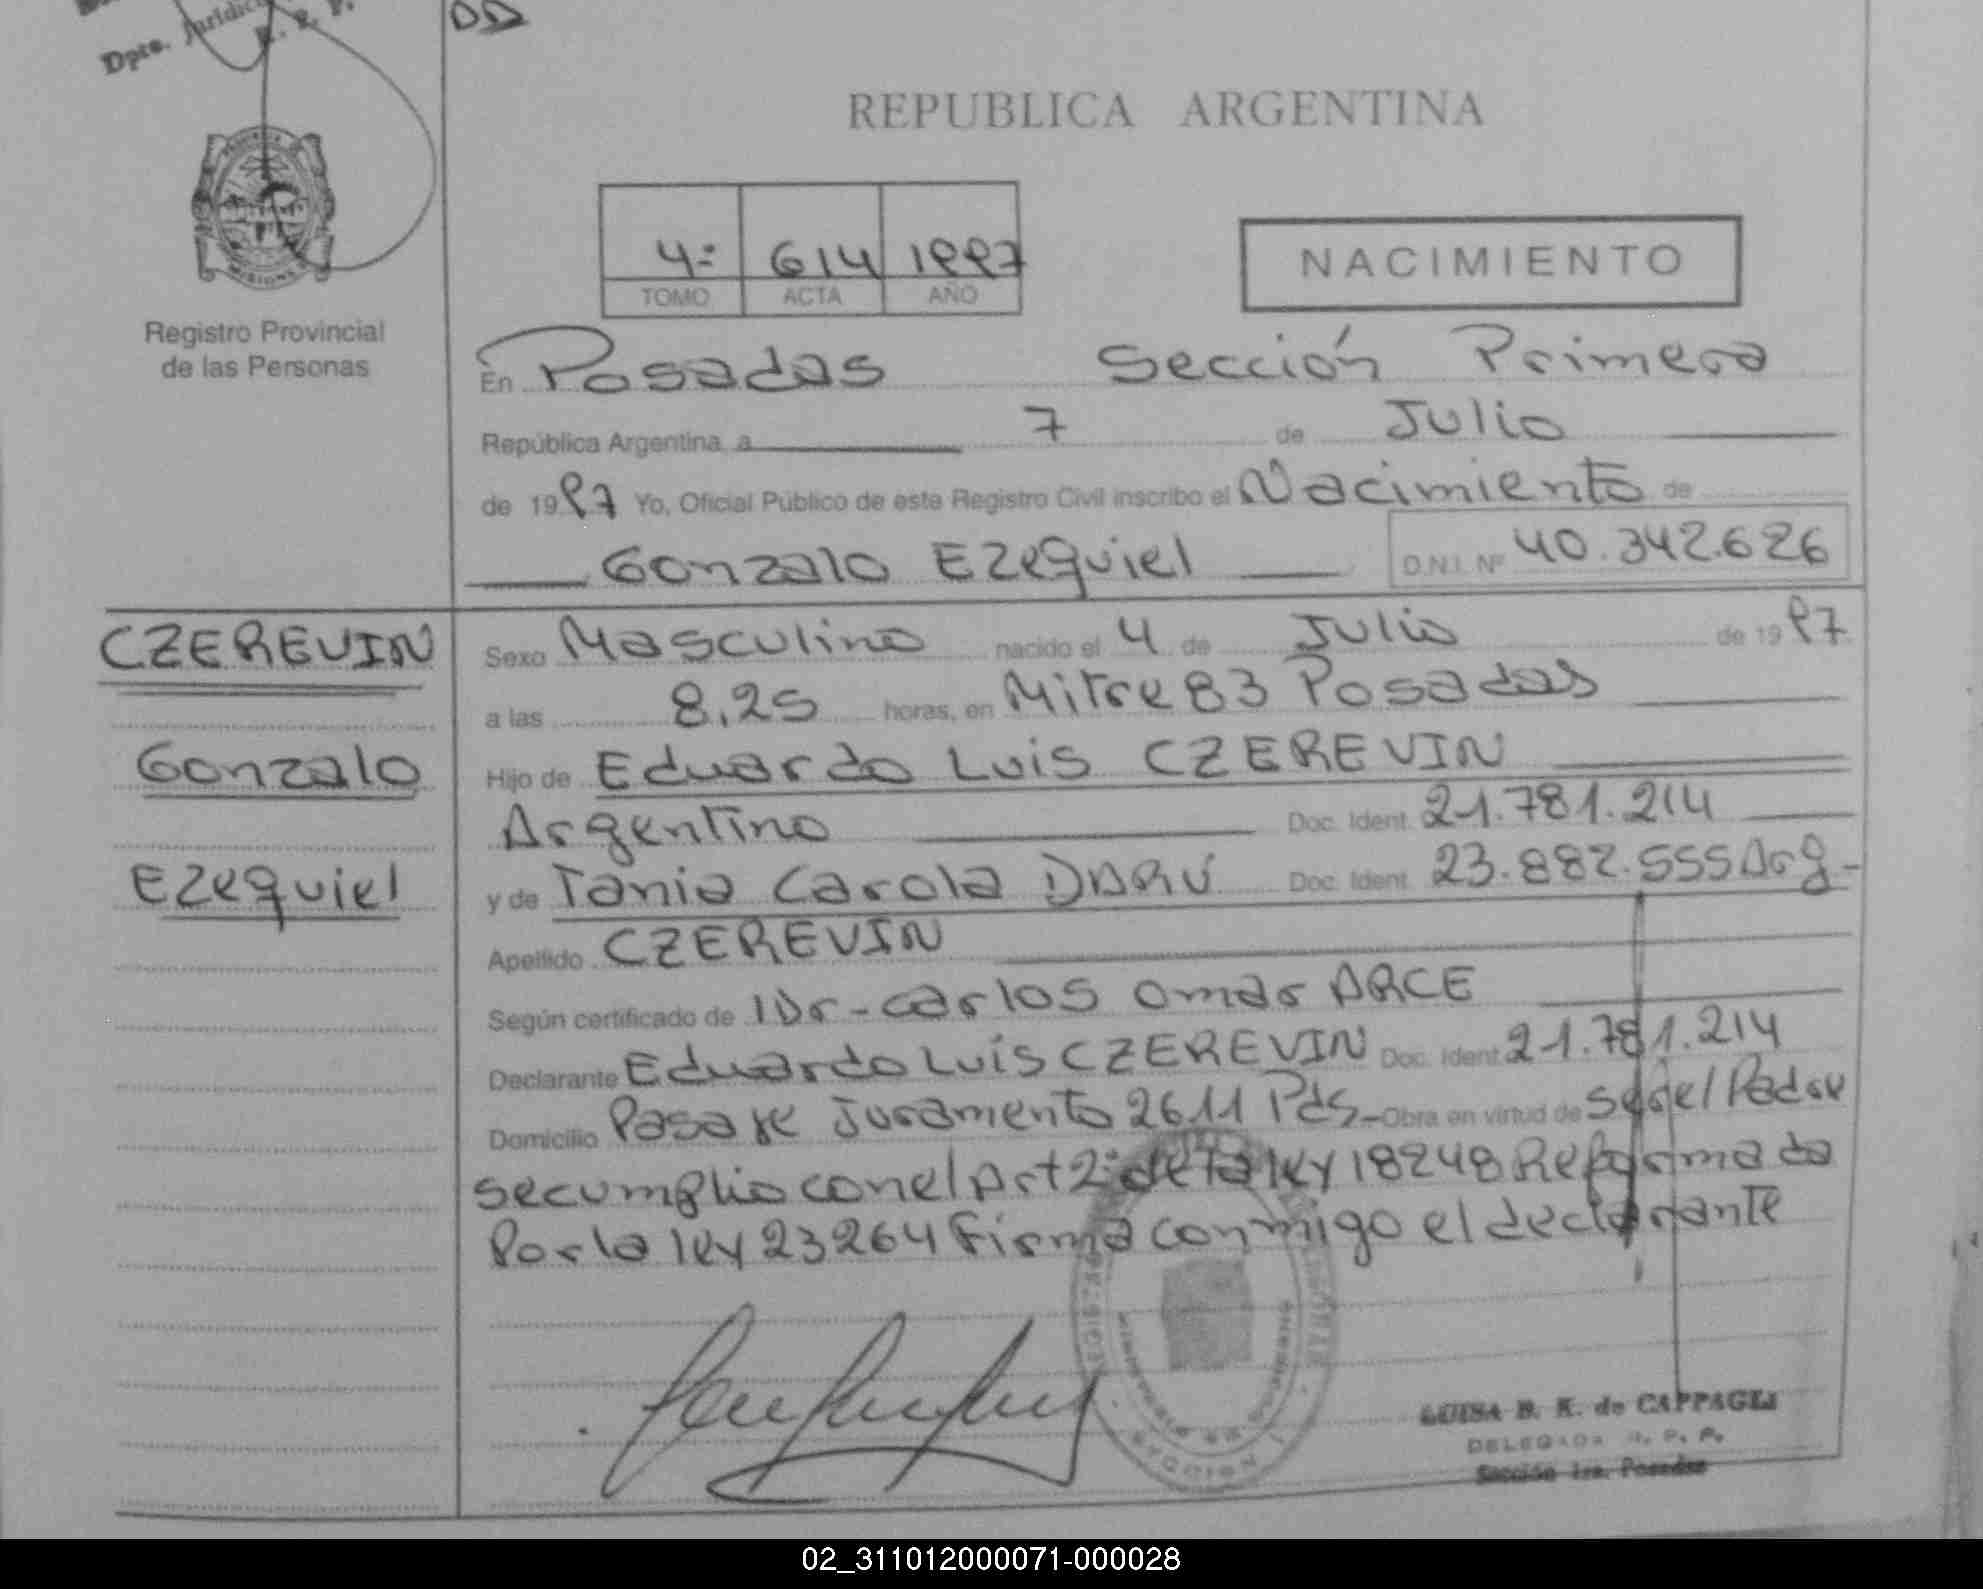 Dpto. Jurídico
R. P. P.
REPUBLICA ARGENTINA
4º 614 1997
TOMO ACTA AÑO
NACIMIENTO
MISIONES
Registro Provincial
de las Personas
En Posadas Sección Primera
República Argentina, a 7 de Julio
de 1997 Yo, Oficial Público de este Registro Civil inscribo el Nacimiento de
Gonzalo Ezequiel D.N.I. Nº 40.342.626
CZEREVIN
Gonzalo
Ezequiel
Sexo Masculino nacido el 4 de Julio de 1997
a las 8,25 horas, en Mitre 83 Posadas
Hijo de Eduardo Luis CZEREVIN
Argentino Doc. Ident. 21.781.214
y de Tania Carola DARÚ Doc. Ident. 23.882.555 Arg-
Apellido CZEREVIN
Según certificado de Dr-Carlos Omar ARCE
Declarante Eduardo Luis CZEREVIN Doc. Ident. 21.781.214
Domicilio Pasaje Juramento 2611 Pds- Obra en virtud de ser el Padre
se cumplio con el Art 2º de la ley 18248 Reformada
Por la ley 23264 Firma conmigo el declarante
LUISA B. K. de CAPPAGLI
DELEGADA R. P. P.
Sección 1ra. Posadas
02_311012000071-000028